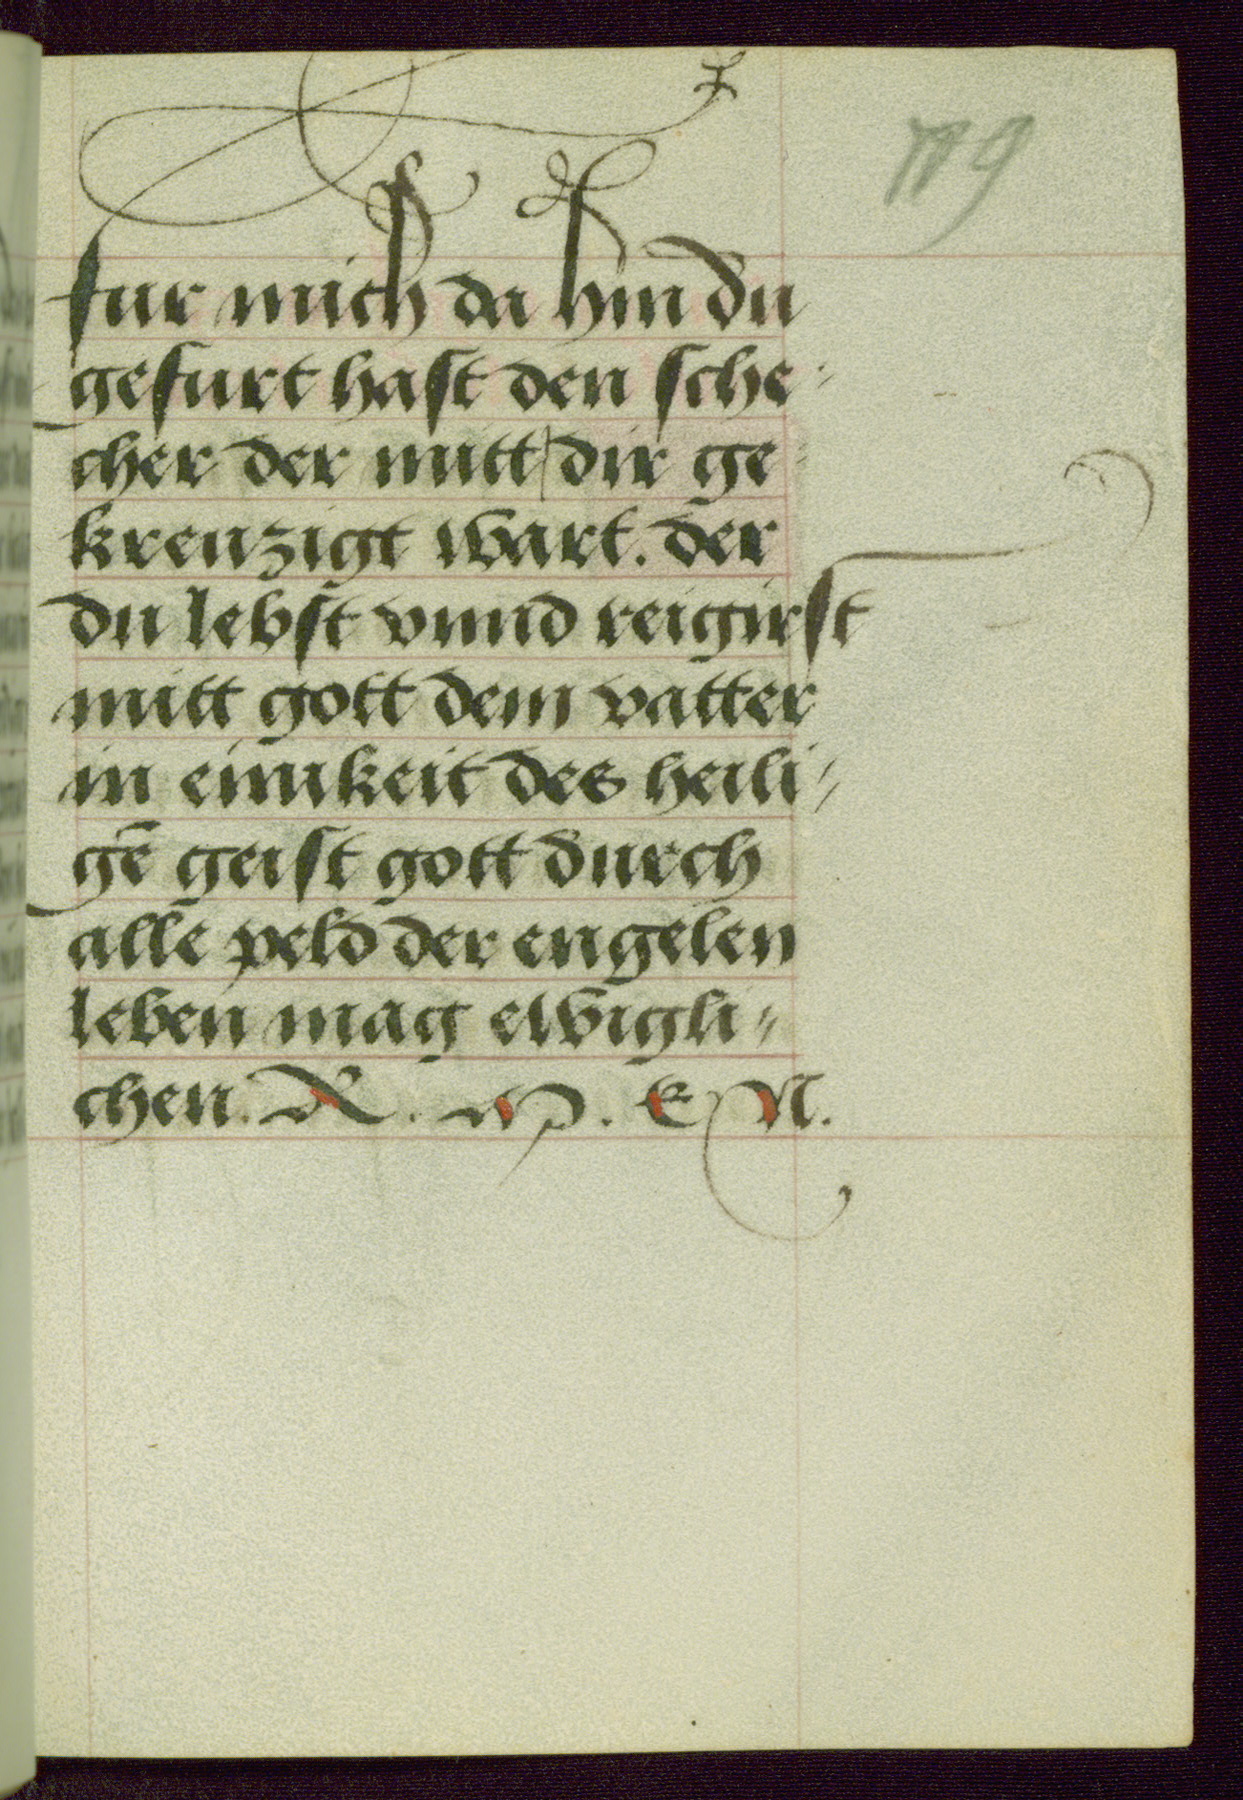 fur mich da hin du
gefurt hast den sche-
cher der mitt dir ge-
kreuzigt wart. der
du lebst vnnd reigirst
mitt gott dem vatter
in einikeit des heili-
gē geist gott durch
alle weld der engelen
leben mag ewigli-
chen. A. M. E N.